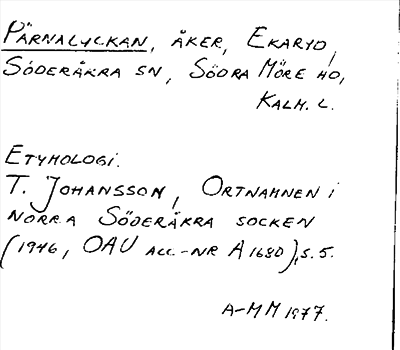 PÄRNALYCKAN, ÅKER, EKARYD,
SÖDERÅKRA SN, SÖDRA MÖRE HD,
KALM. L.
ETYMOLOGI.
T. JOHANSSON, ORTNAMNEN I
NORRA SÖDERÅKRA SOCKEN
(1946, OAU ACC.-NR A1680), S. 5.
A-MM 1977.